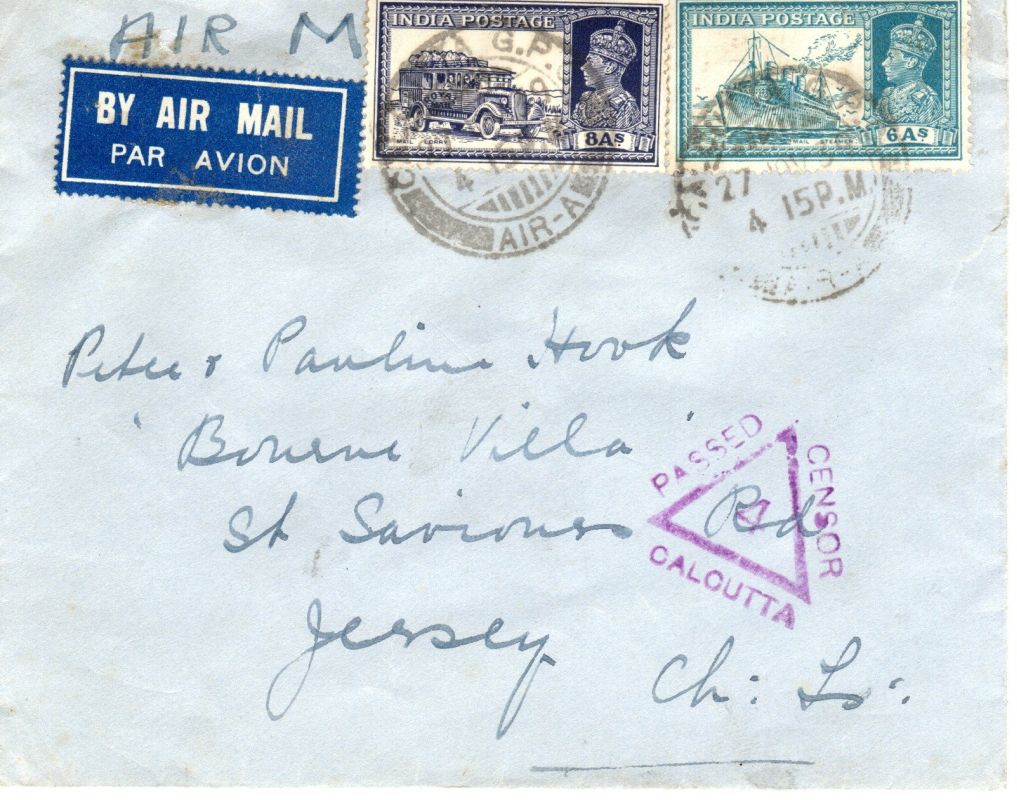 AIR M
BY AIR MAIL
PAR AVION
INDIA POSTAGE
MAIL LORRY
8As
INDIA POSTAGE
MAIL STEAMER
6As
G.P.
AIR-A
27
4 15P.M.
Peter & Pauline Hook
"Bourne Villa"
St Saviours Rd
Jersey
Ch: Is:
PASSED
CENSOR
CALCUTTA